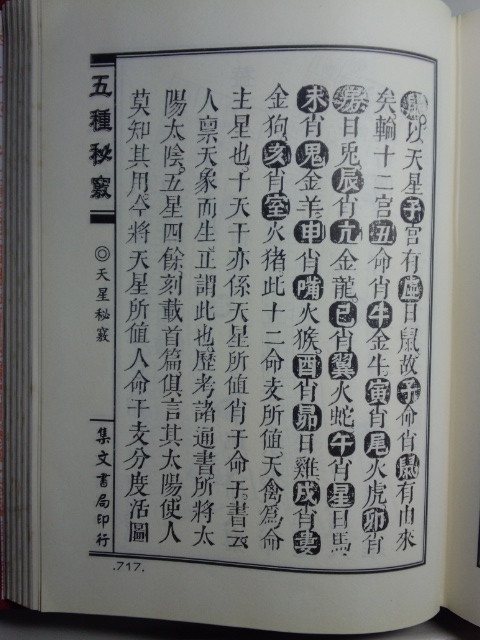 鼠以天星子宮有虛日鼠故子命肖鼠有由來
矣輪十二宮丑命肖牛金牛寅肖尾火虎卯肖
房日兎辰肖亢金龍巳肖翼火蛇午肖星日馬
未肖鬼金羊申肖嘴火猴酉肖昴日雞戌肖婁
金狗亥肖室火猪此十二命支所值天禽爲命
主星也十天干亦係天星所值肖于命于書云
人稟天象而生正謂此也歷考諸通書所將太
陽太陰五星四餘刻載首篇俱言其太陽使人
莫知其用今將天星所值人命干支分度活圖
五種秘竅
◎天星秘竅
集文書局印行
.717.